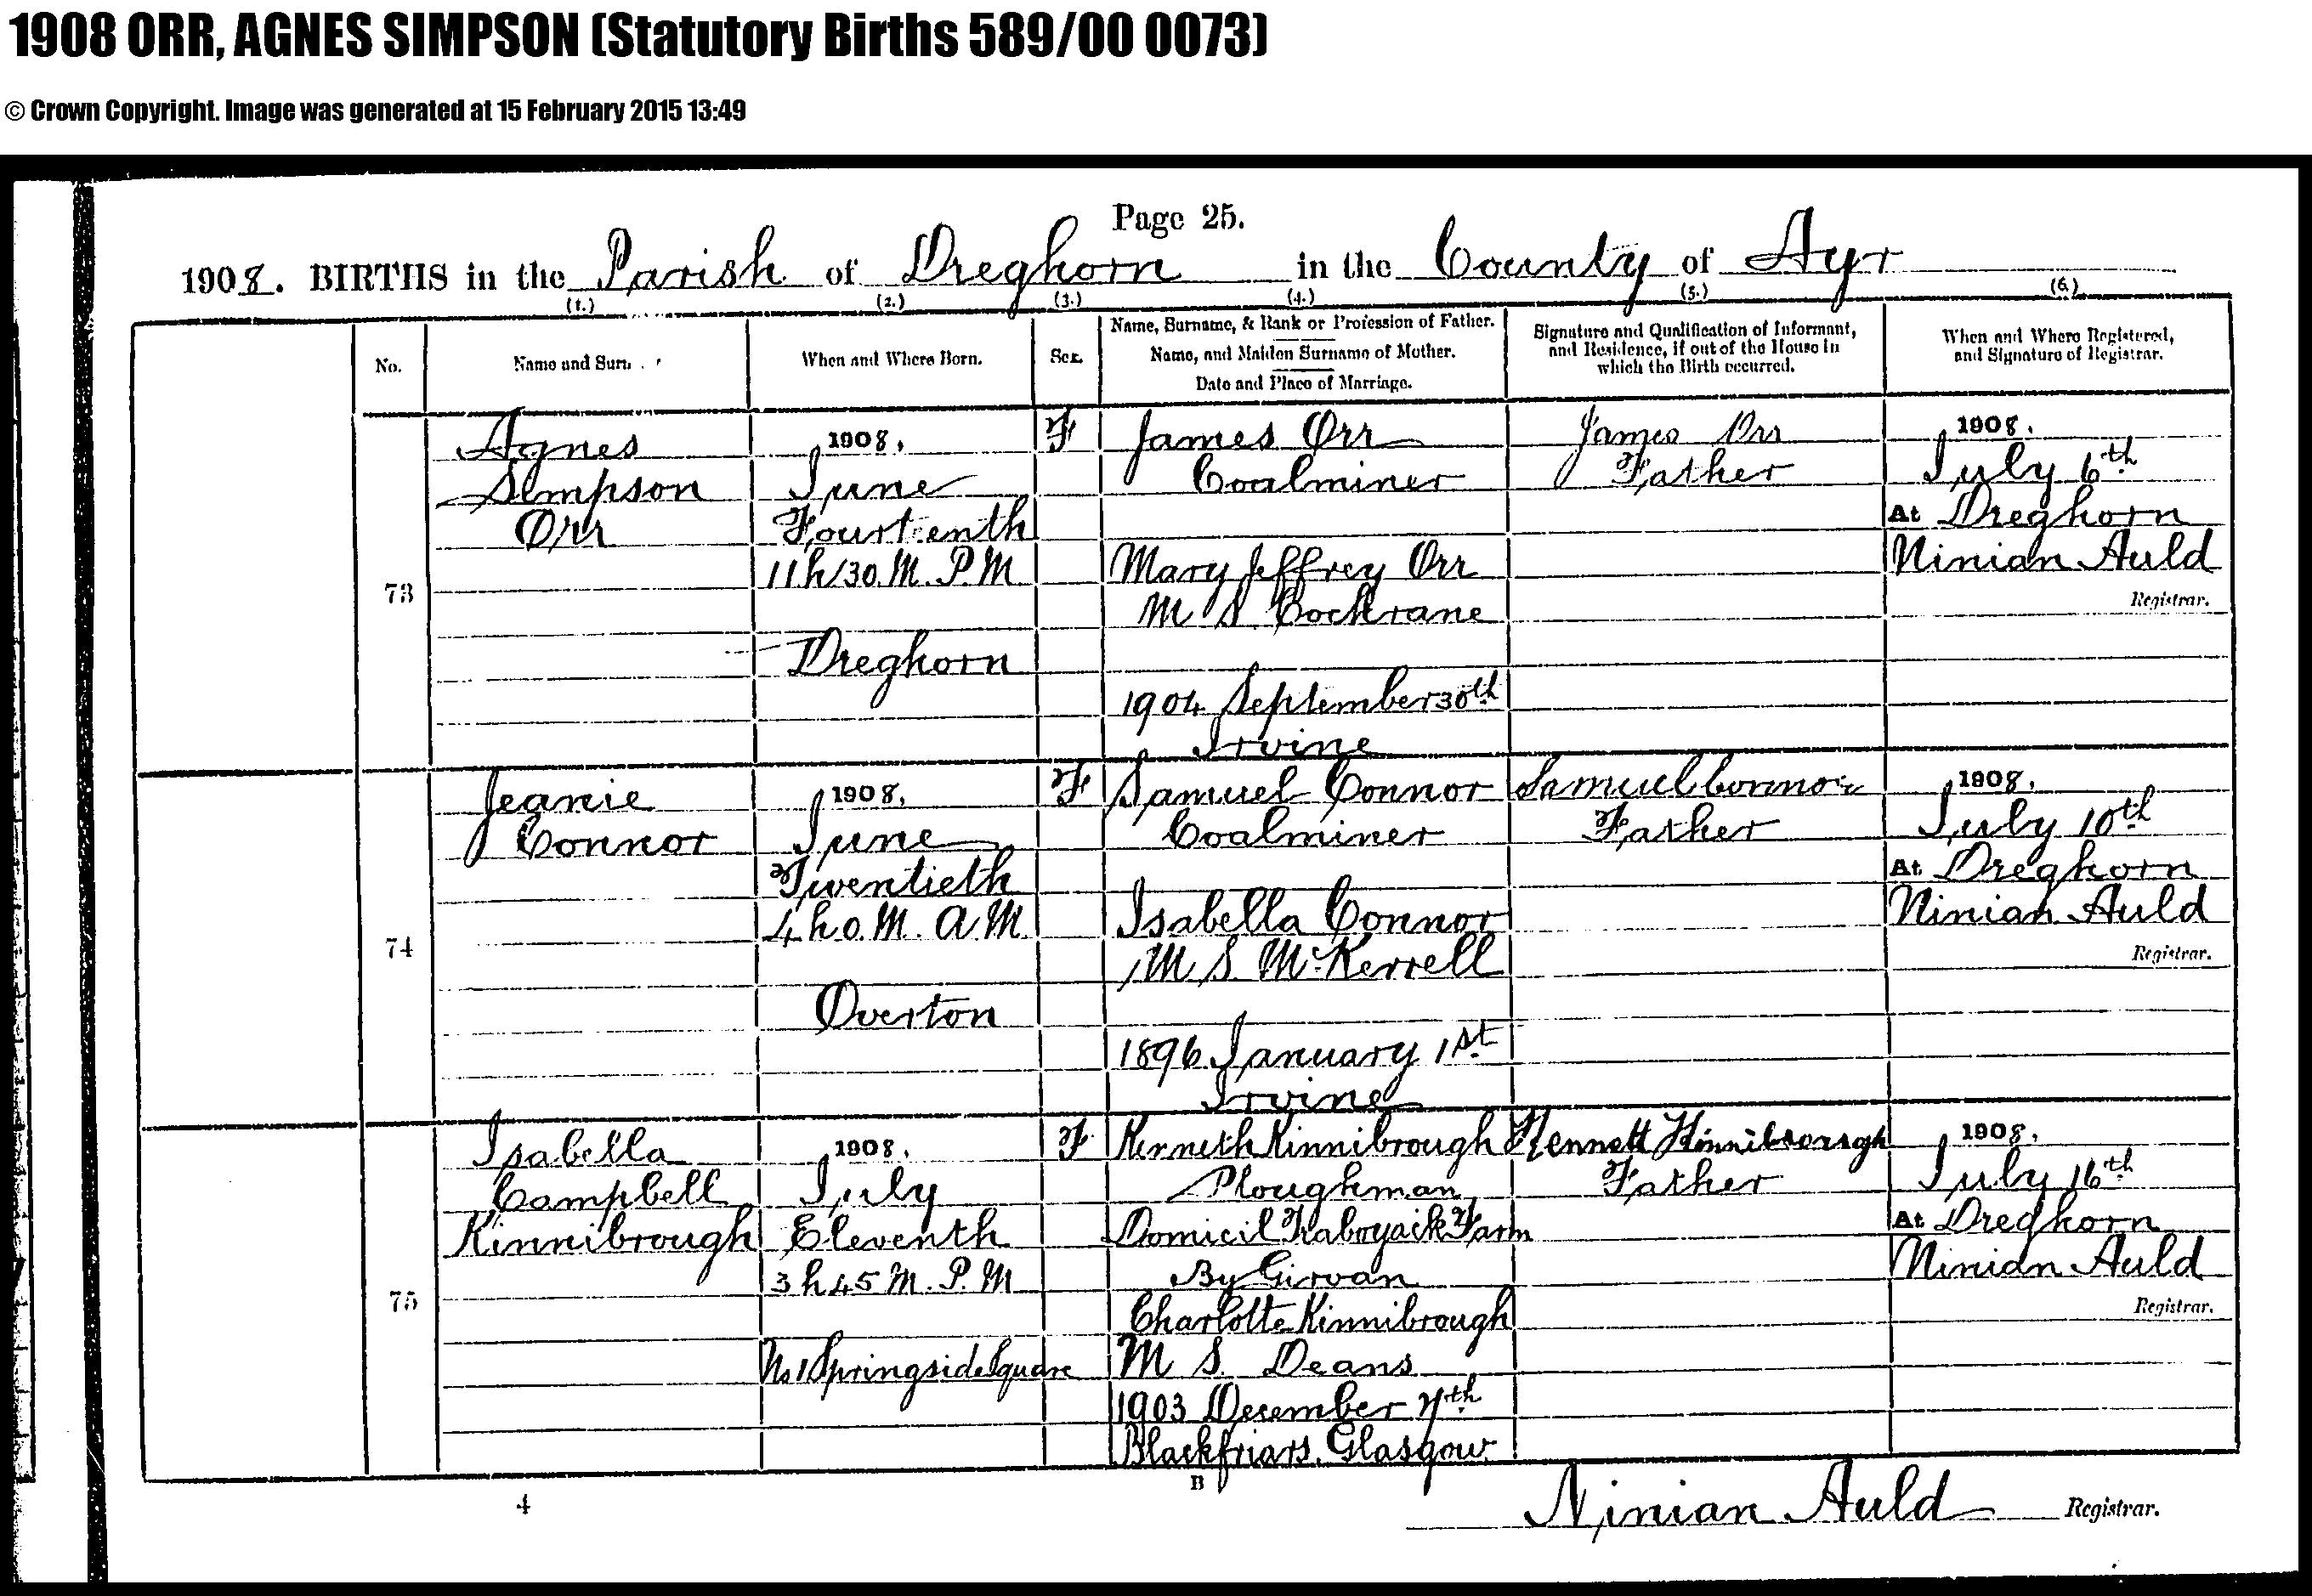 1908 ORR, AGNES SIMPSON (Statutory Births 589/00 0073)
© Crown Copyright. Image was generated at 15 February 2015 13:49
Page 25.
1908. BIRTHS in the Parish of Dreghorn in the County of Ayr
(1.) (2.) (3.) (4.) (5.) (6.)
No.
Name and Surn
When and Where Born.
Sex.
Name, Surname, & Rank or Profession of Father.
Name, and Maiden Surname of Mother.
Date and Place of Marriage.
Signature and Qualification of Informant,
and Residence, if out of the House in
which the Birth occurred.
When and Where Registered,
and Signature of Registrar.
73
Agnes
Simpson
Orr
1908.
June
Fourteenth
11 h 30 M. P.M
Dreghorn
F
James Orr
Coalminer
Mary Jeffrey Orr
M S Cochrane
1904 September 30th
Irvine
James Orr
Father
1908.
July 6th
At Dreghorn
Ninian Auld
Registrar.
74
Jeanie
Connor
1908.
June
Twentieth
4 h 0 M. A.M
Overton
F
Samuel Connor
Coalminer
Isabella Connor
M S. McKerrell
1896 January 1st
Irvine
Samuel Connor
Father
1908.
July 10th
At Dreghorn
Ninian Auld
Registrar.
75
Isabella
Campbell
Kinnibrough
1908.
July
Eleventh
3 h 45 M. P.M
No 1 Springside Square
F
Kenneth Kinnibrough
Ploughman
Domicil Farm
By Girvan
Charlotte Kinnibrough
M S. Deans
1903 December
Blackfriars. Glasgow
Kennett Kinnibrough
Father
1908.
July 16th
At Dreghorn
Ninian Auld
Registrar.
4
B
Ninian Auld Registrar.